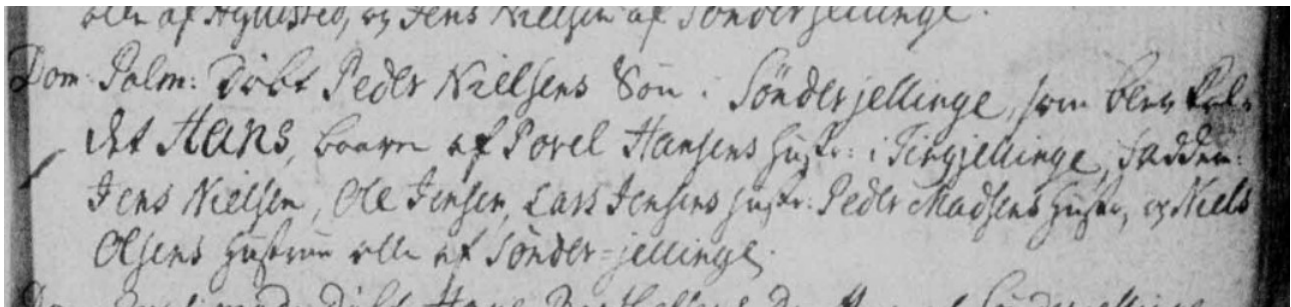 alle af Hyllested, og Jens Nielsen af Sönderjellinge.
Dom: Palm: Döbt Peder Nielsens Sön i Sönderjellinge, som blev kal-
det Hans, baaren af Povel Hansens Hustr: i Tingjellinge, Fadder:
Jens Nielsen, Ole Jensen, Lars Jensens Hustr: Peder Madsens Hustr, og Niels
Olsens Hustrue alle af Sönder-jellinge.
Döbt Hans